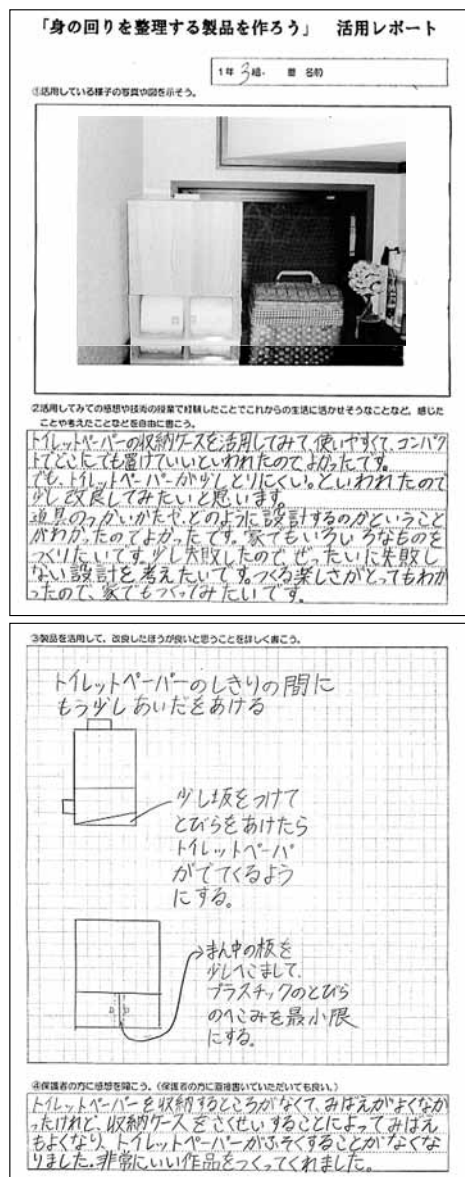 「身の回りを整理する製品を作ろう」　活用レポート
1年 3組-　番 名前
①活用している様子の写真や図を示そう。
②活用してみての感想や技術の授業で経験したことでこれからの生活に活かせそうなことなど、感じた
ことや考えたことなどを自由に書こう。
トイレットペーパーの収納ケースを活用してみて、使いやすくて、コンパク
トでどこにでも置けていいといわれたのでよかったです。
でも、トイレットペーパーが少しとりにくい。といわれたので
少し改良してみたいと思います。
道具のつかいかたや、どのように設計するのかということ
がわかったのでよかったです。家でもいろいろなものを
つくりたいです。少し失敗したので、ぜったいに失敗し
ない設計を考えたいです。つくる楽しさがとってもわか
ったので、家でもつくってみたいです。
③製品を活用して、改良したほうが良いと思うことを詳しく書こう。
トイレットペーパーのしきりの間に
もう少しあいだをあける
少し坂をつけて
とびらをあけたら
トイレットペーパ
がでてくるよう
にする。
まん中の板を
少しへこまして、
プラスチックのとびら
のへこみを最小限
にする。
④保護者の方に感想を聞こう。（保護者の方に直接書いていただいても良い。）
トイレットペーパーを収納するところがなくて、みばえがよくなか
ったけれど、収納ケースをさくせいすることによってみばえ
もよくなり、トイレットペーパーがふそくすることがなくな
りました。非常にいい作品をつくってくれました。